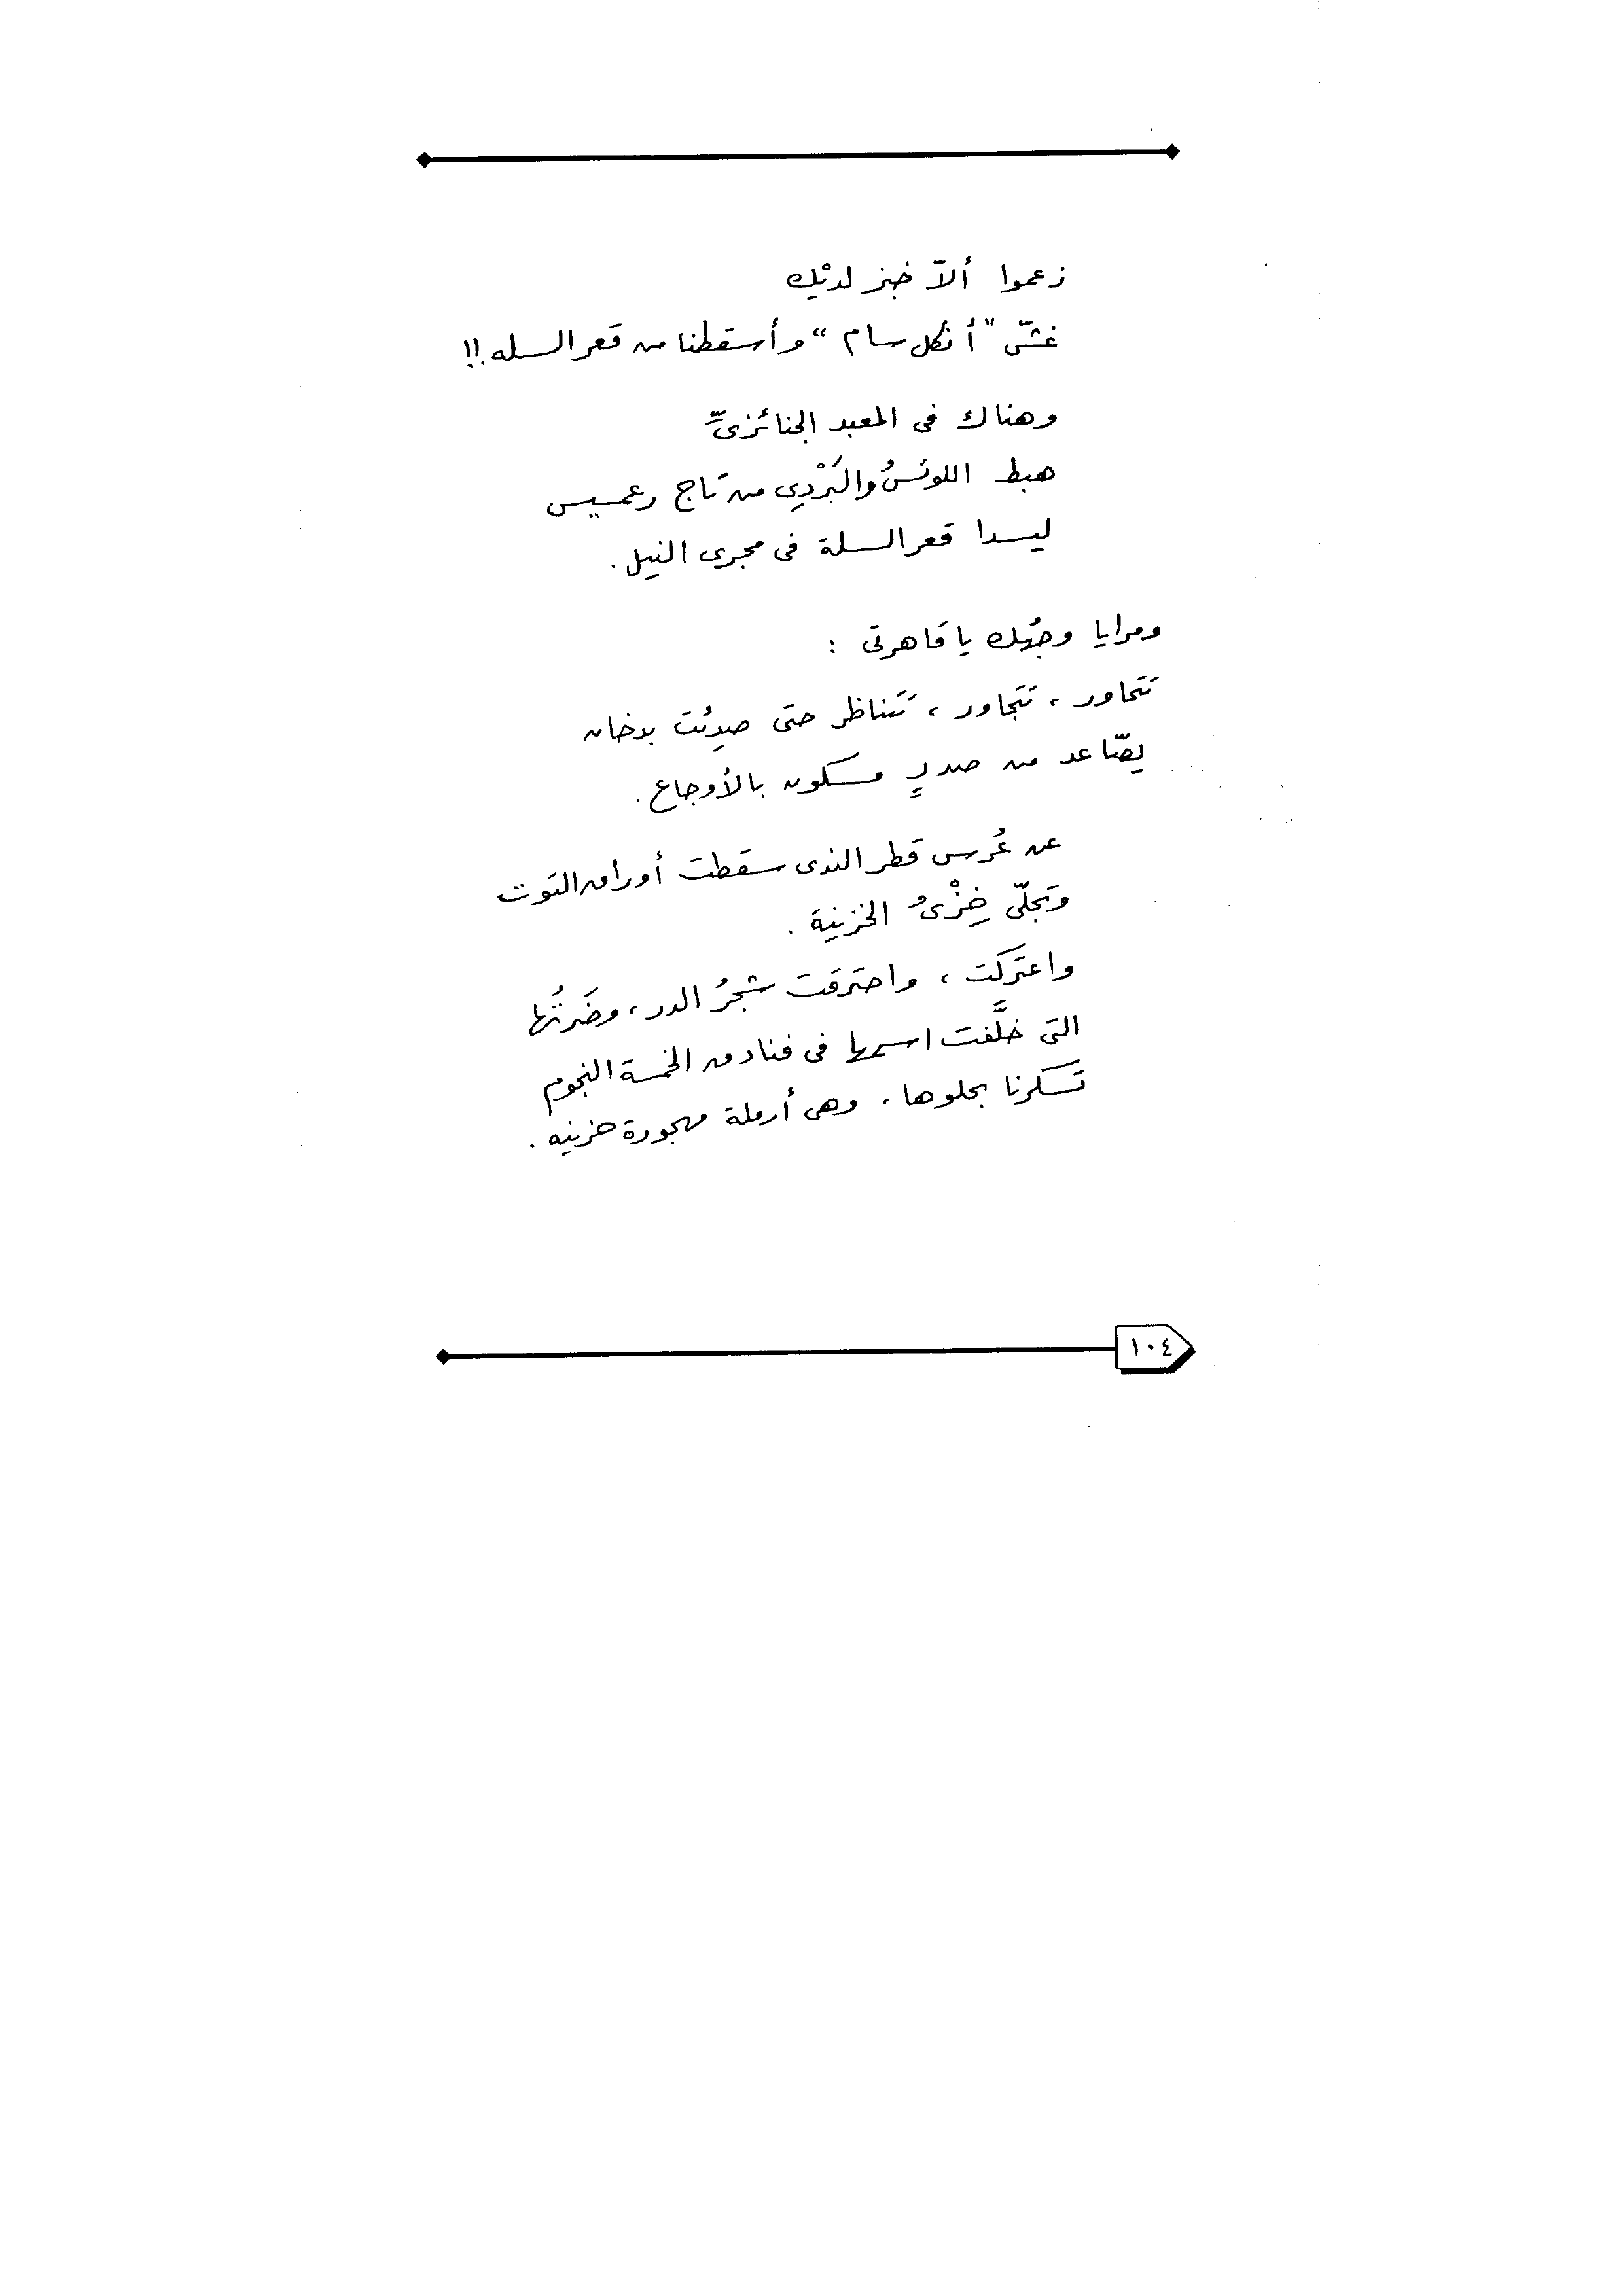 زعموا ألاّ خبز لديْك
غشّ "أنكل سام" وأسقطنا من قعر السله.!!
وهناك فى المعبد الجنائزىِّ
هبط اللوتسُ والبَرْدِي من تاج رعمسيس
ليسدا قعر السلة فى مجرى النيل.
ومرايا وجهُك يا قاهرتى :
تتحاور ، تتجاور ، تتناظر حتى صدِئت بدخان
يصّاعد من صدرٍ مسكون بالأوجاع.
عن عُرس قطر الندى سقطت أوراق التوت
وتجلّى خِزْىُ الخزينة .
واعتركَت ، واحترقت شجرُ الدر ، وضَرتُها
التى خلَّفت اسمها فى فنادق الخمسة النجوم
تسكرنا بحلوها ، وهى أرملة مهجورة حزينه .
١٠٤